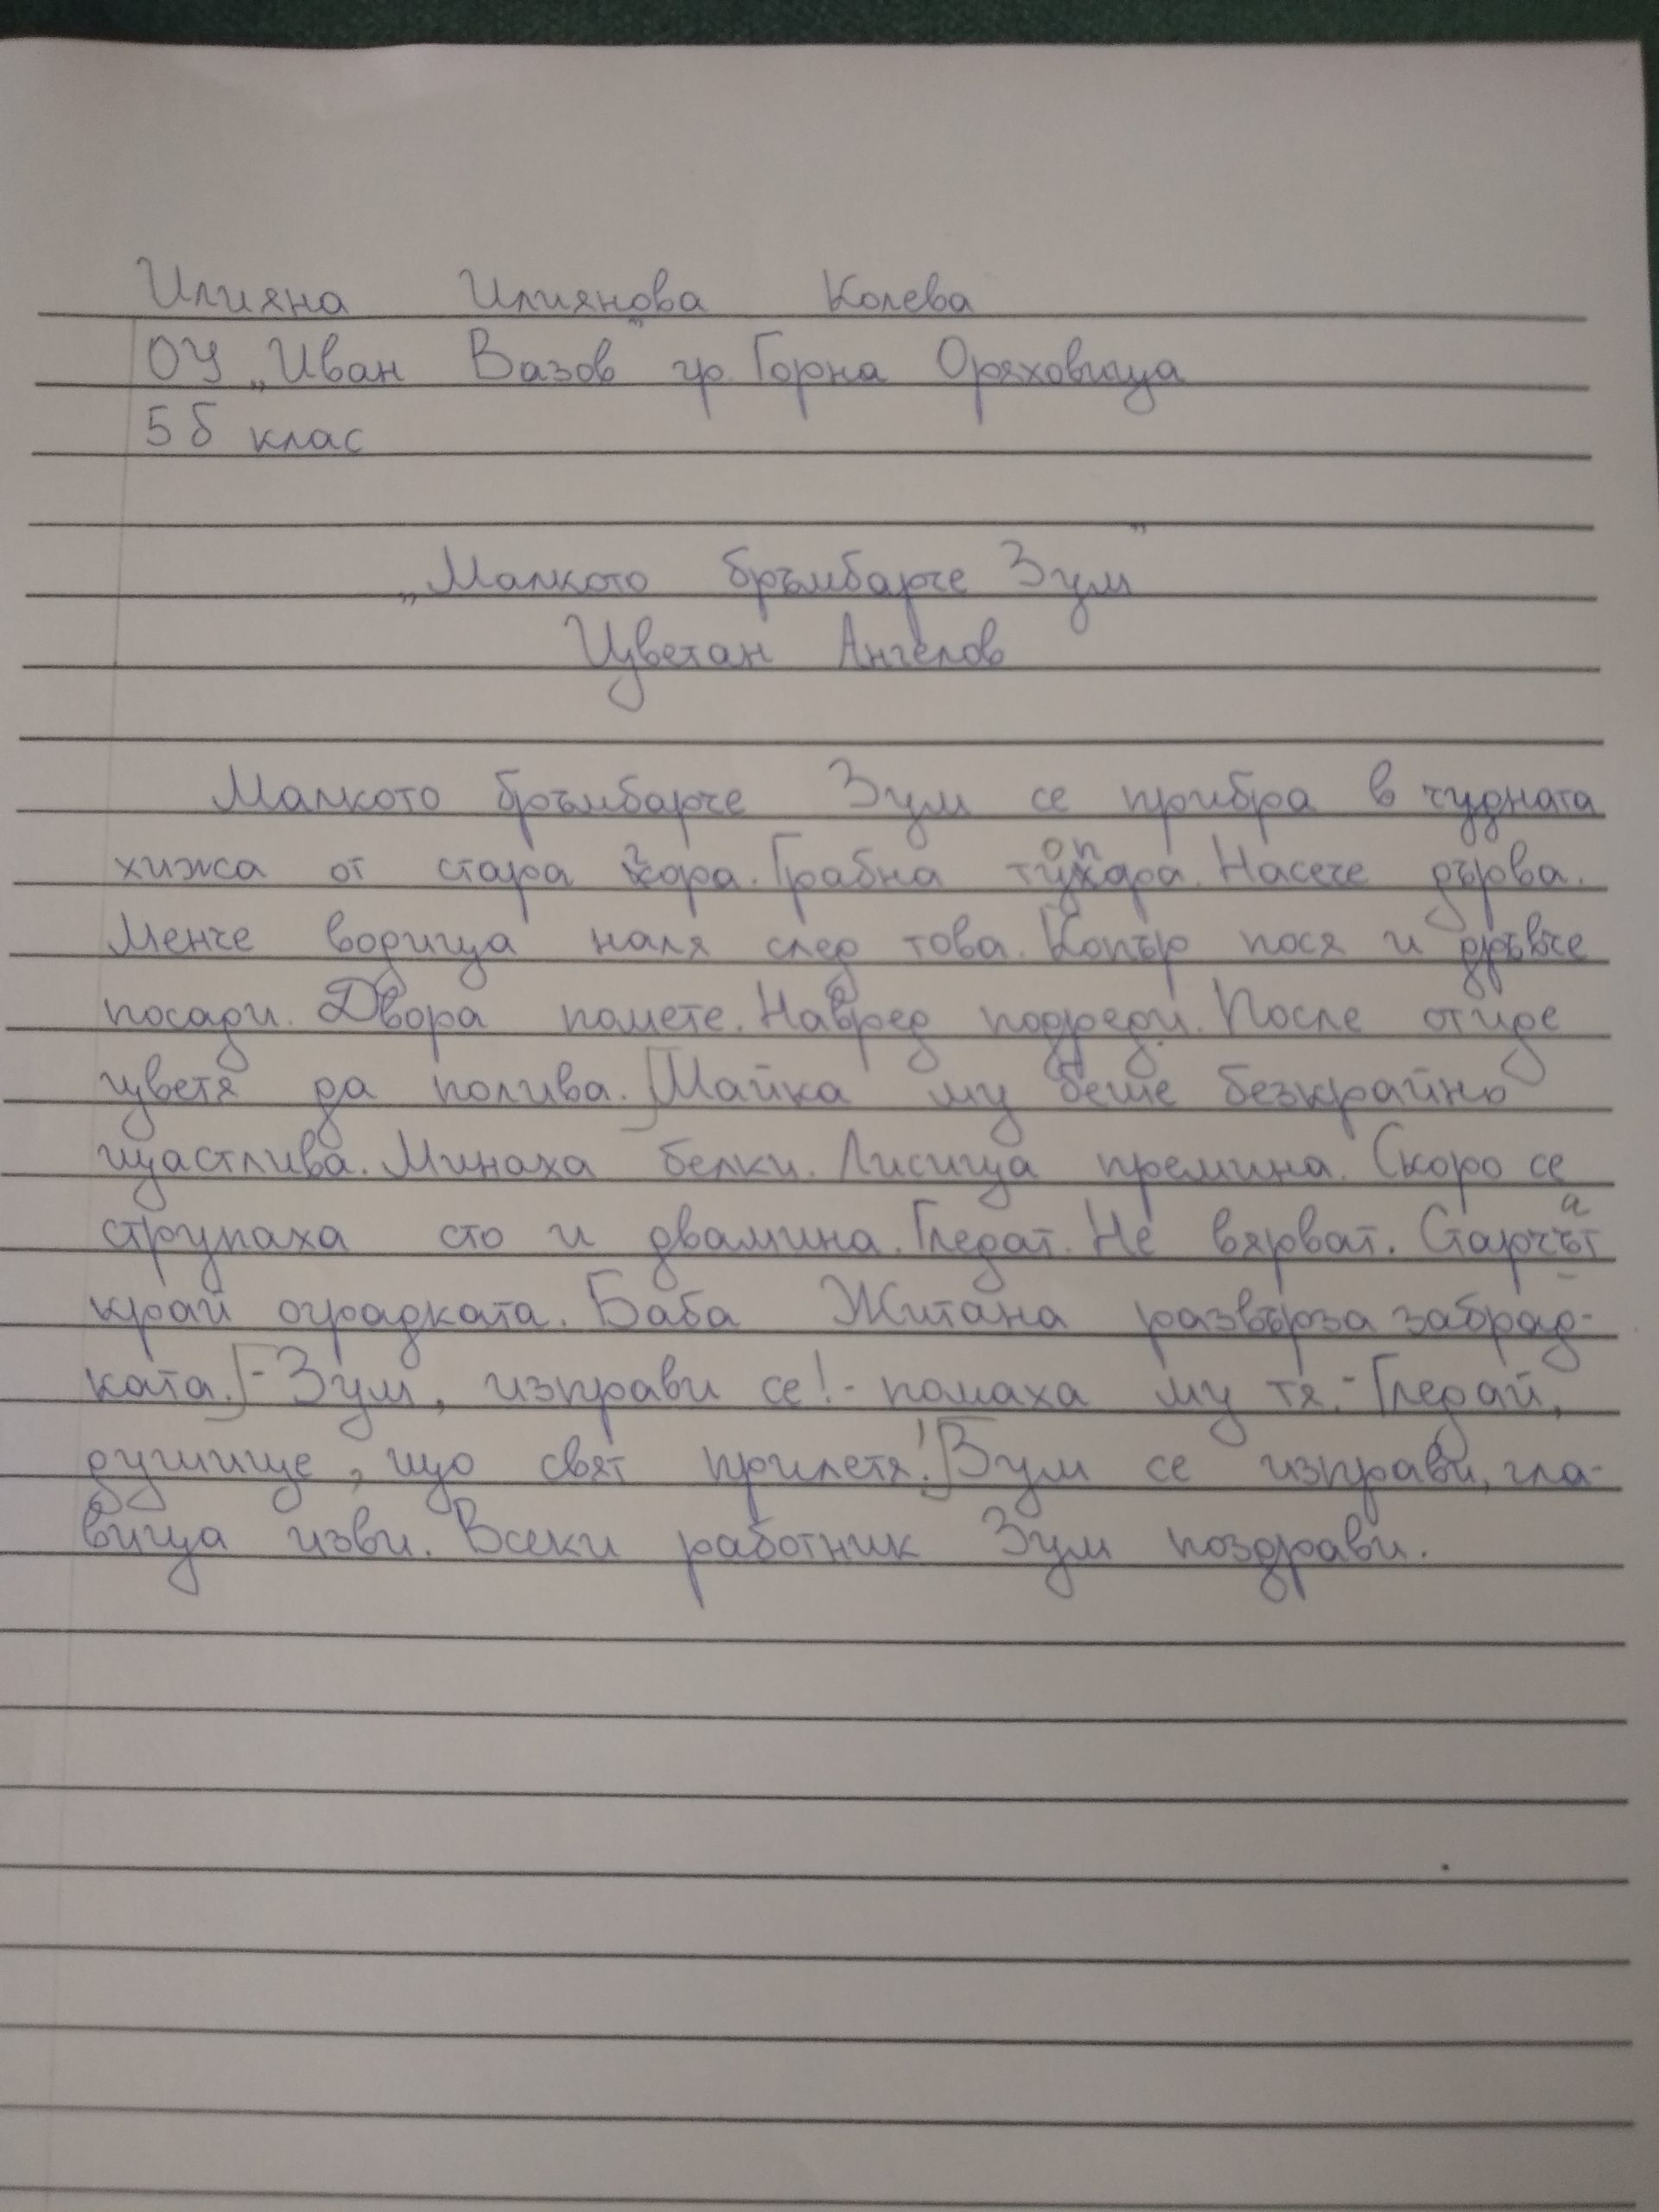 Илияна Илиянова Колева
ОУ „Иван Вазов" гр. Горна Оряховица
5 б клас
„Малкото бръмбарче Зум"
Цветан Ангелов
Малкото бръмбарче Зум се прибра в чудната
хижа от стара гора. Грабна топора. Насече дърва.
Менче водица наля след това. Копър пося и дръвче
посади. Двора помете. Навред подреди. После отиде
цветя да полива. Майка му беше безкрайно
щастлива. Минаха белки. Лисица премина. Скоро се
струпаха сто и двамина. Гледат. Не вярват. Старчат
край оградката. Баба Житана развърза забрад-
ката. - Зум, изправи се! - помаха му тя. - Гледай,
душице, що свят прилетя! Зум се изправи, гла-
вица изви. Всеки работник Зум поздрави.